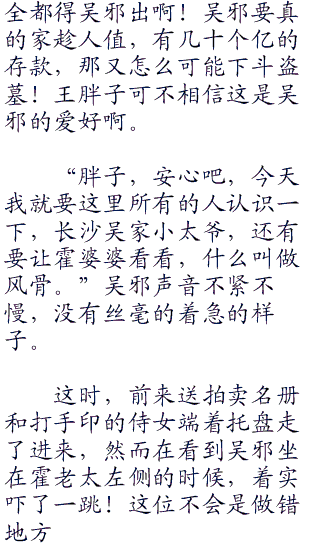 全都得吴邪出啊！吴邪要真
的家趁人值，有几十个亿的
存款，那又怎么可能下斗盗
墓！王胖子可不相信这是吴
邪的爱好啊。
“胖子，安心吧，今天
我就要这里所有的人认识一
下，长沙吴家小太爷，还有
要让霍婆婆看看，什么叫做
风骨。”吴邪声音不紧不
慢，没有丝毫的着急的样
子。
这时，前来送拍卖名册
和打手印的侍女端着托盘走
了进来，然而在看到吴邪坐
在霍老太左侧的时候，着实
吓了一跳！这位不会是做错
地方